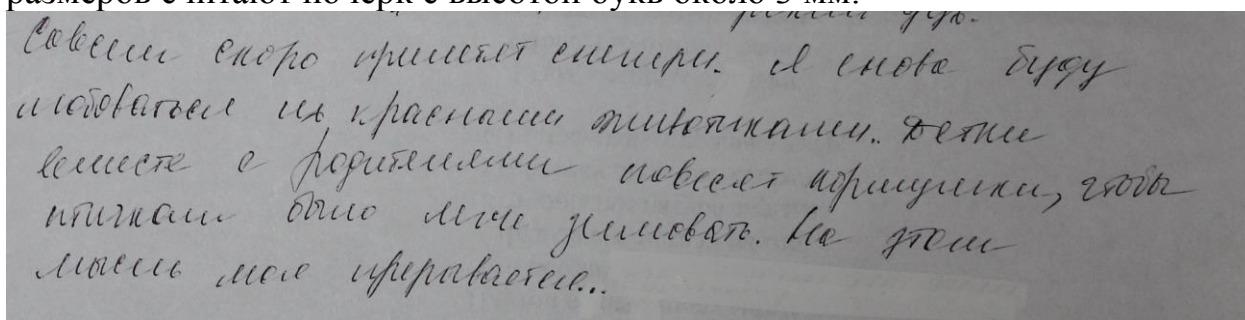 размеров считают почерк с высотой букв около 3 мм.
Совсем скоро прилетят снегири. Я снова буду
любоваться их красными животиками. Детки
вместе с родителями повесят кормушки, чтобы
птичкам было легче зимовать. На этом
мысль моя прерывается...